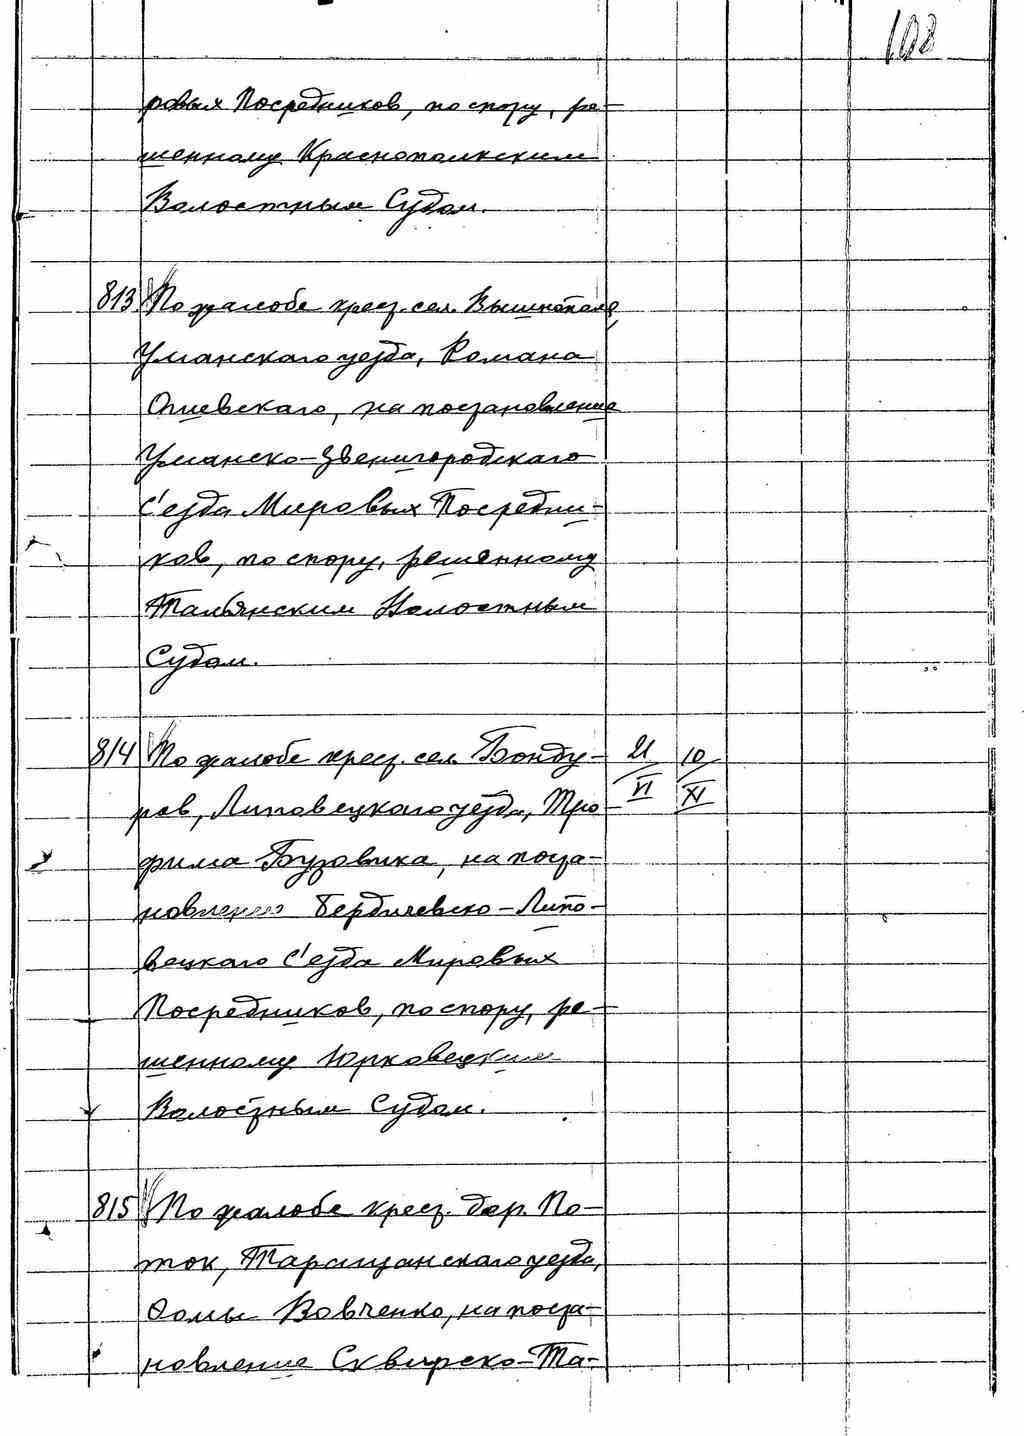 108
ровых Посредников, по спору, ре-
шенному Краснопольским
Волостным Судом.
813 По жалобе крест. сел. Вышнополя,
Уманскаго уезда, Романа
на постановление
Уманско-Звенигородскаго
С'езда Мировых Посредни-
ков, по спору, решенному
Тальянским Волостным
Судом.
814 По жалобе крест. сел. Бонду- 21/VI 10/XI
ров, Липовецкаго уезда, Тро-
фима Бузовика, на поста-
новление Бердичевско-Липо-
вецкаго С'езда Мировых
Посредников, по спору, ре-
шенному Юрковецким
Волостным Судом.
815 По жалобе крест. дер. По-
ток, Таращанскаго уезда,
Фомы Вовченко, на поста-
новление Сквирско-Та-